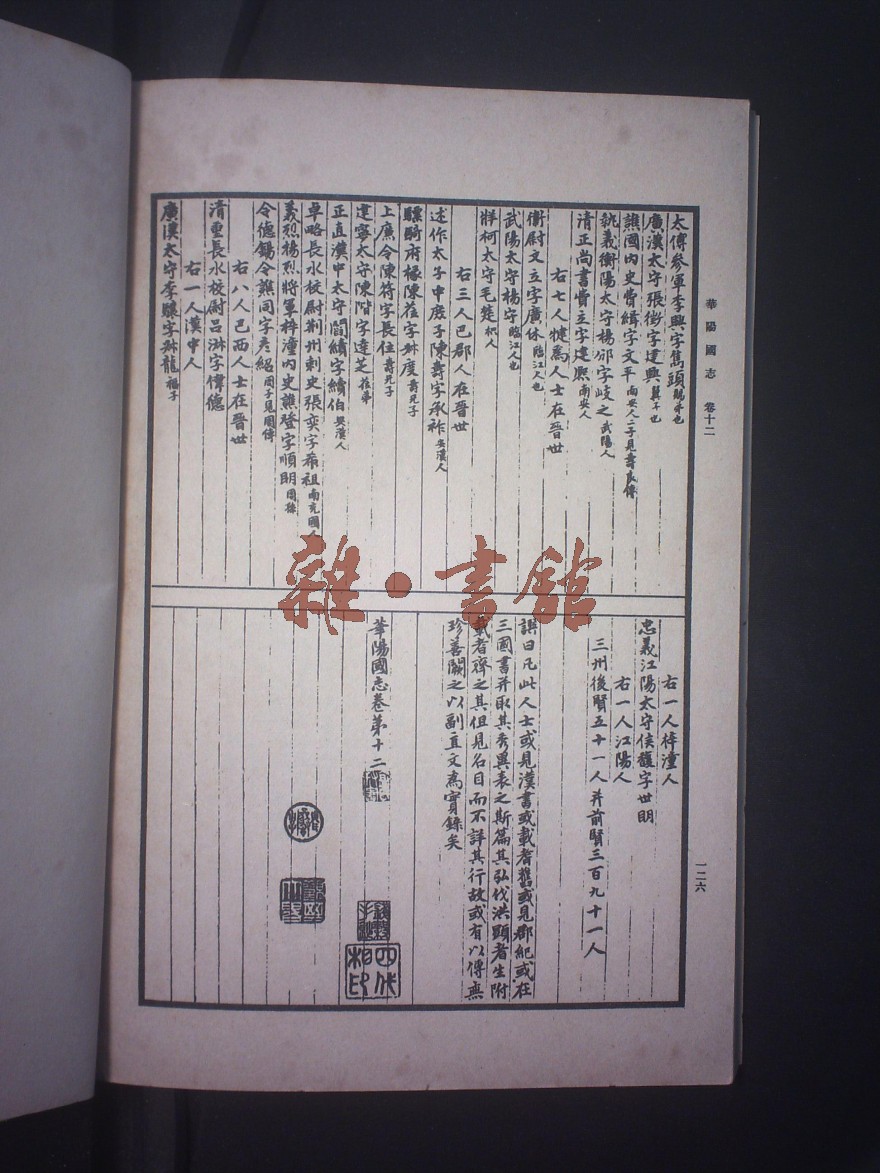 華陽國志 卷十二
太傅參軍李興字雋頭賜弟也
廣漢太守張徵字建興翼子也
譙國內史費緝字文平南安人二子見壽良傳
執義衡陽太守楊邠字岐之武陽人
清正尚書費立字建熙南安人
右七人犍為人士在晉世
衛尉文立字廣休臨江人也
武陽太守楊宗臨江人也
牂柯太守毛楚枳人
右三人巴郡人在晉世
述作太子中庶子陳壽字承祚安漢人
驃騎府掾陳莅字叔度壽兄子
上廉令陳符字長住壽兄子
建寧太守陳階字達芝莅弟
正直漢中太守閻纘字續伯安漢人
卓略長水校尉荆州刺史張奕字希祖南充國人
義烈揚烈將軍梓潼內史譙登字順明周孫
令德錫令譙同字彥紹周子見周傳
右八人巴西人士在晉世
清重長水校尉呂淑字偉德
右一人漢中人
廣漢太守李驤字叔龍福子
右一人梓潼人
忠義江陽太守侯馥字世明
右一人江陽人
三州後賢五十一人并前賢三百九十一人
譔曰凡此人士或見漢書或載耆舊或見郡紀或在
三國書并取其秀異表之斯篇其弘伐洪顯者生附
載者齊之其但見名目而不詳其行故或有以傳無
珍善闕之以副直文為實錄矣
華陽國志卷第十二
四代相印
一二六
雜·書館